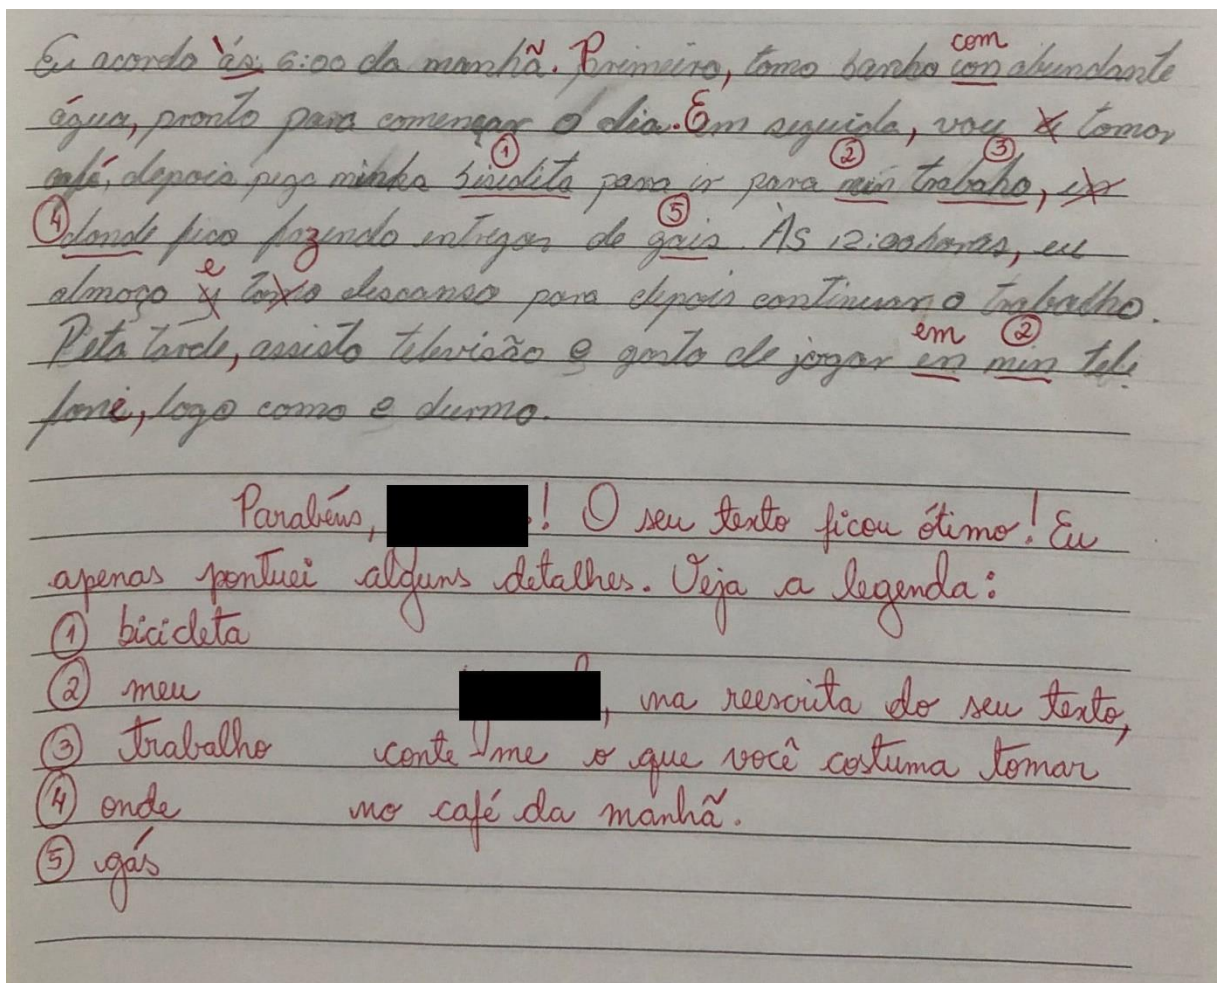 Eu acordo às 6:00 da manhã. Primeiro, tomo banho con abundante
com
água, pronto para começar o dia. Em seguida, vou tomar
café, depois pego minha bisidita para ir para min trabaho,
① ② ③
④ donde fico fazendo entregas de gais. Às 12:00horas, eu
⑤
almoço y tomo descanso para depois continuar o trabalho.
e
Peta tarde, assisto televisão e gosto de jogar en min tele
em ②
fone, logo como e durmo.
Parabéns, ! O seu texto ficou ótimo! Eu
apenas pontuei alguns detalhes. Veja a legenda:
① bicicleta
② meu , na reescrita do seu texto,
③ trabalho conte-me o que você costuma tomar
④ onde no café da manhã.
⑤ gás